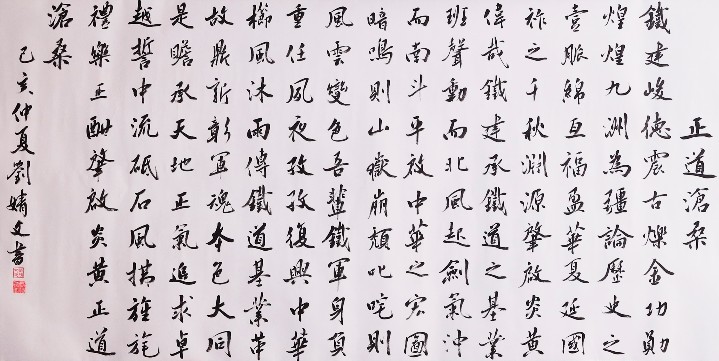 正道滄桑
鐵建峻德震古爍金功勛
煌煌九洲為疆論歷史之
壹脈綿亙福盈華夏延國
祚之千秋淵源肇啟炎黃
偉哉鐵建承鐵道之基業
班聲動而北風起劍氣沖
而南斗平啟中華之宏圖
暗鳴則山嶽崩頹叱咤則
風雲變色吾輩鐵軍身負
重任夙夜孜孜復興中華
櫛風沐雨傳鐵道基業革
故鼎新彰軍魂本色大同
是瞻承天地正氣追求卓
越誓中流砥石風搏旌旄
禮樂正酬肇啟炎黃正道
滄桑
己亥仲夏劉婧文書